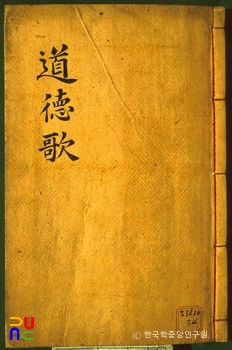 道德歌
ⓒ 한국학중앙연구원